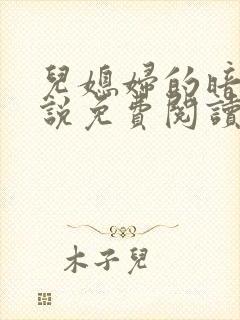 兒媳婦的暗
說免費閱讀
木子兒